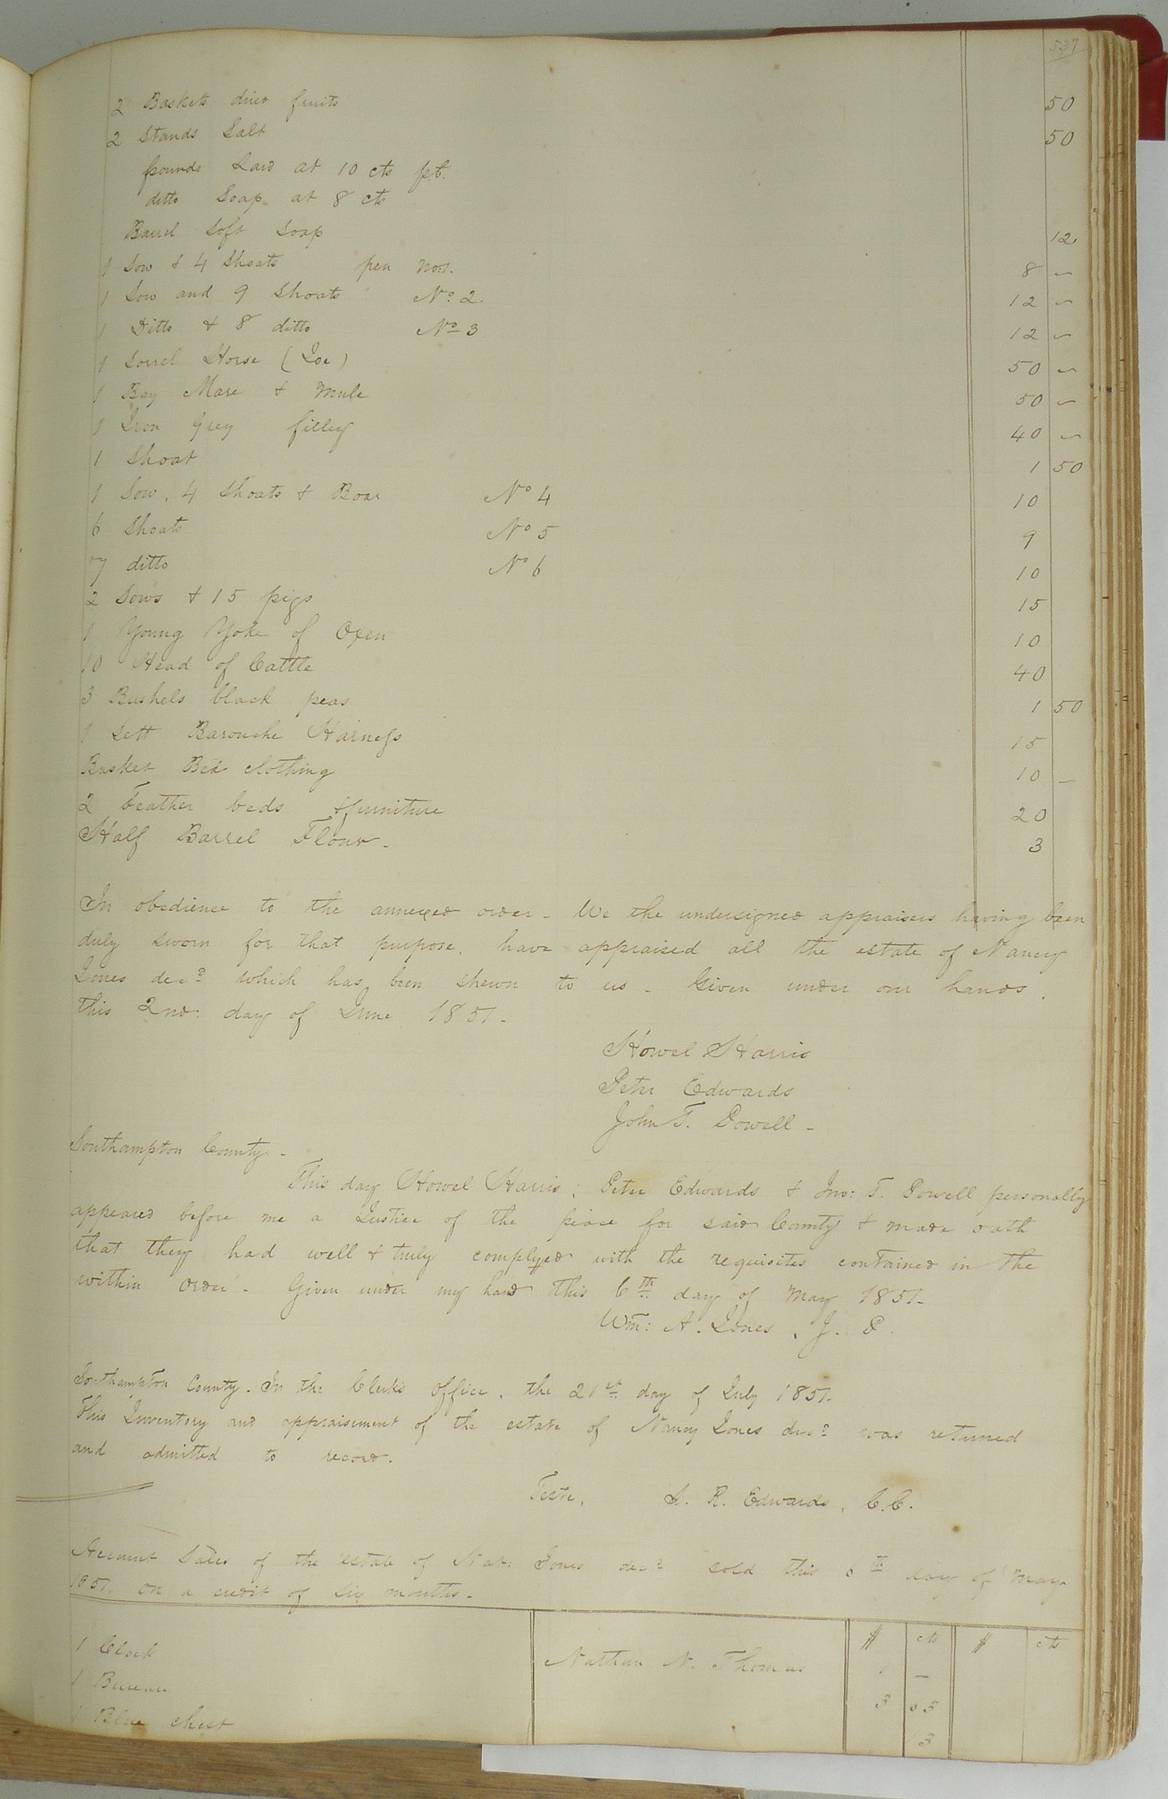 537
2 Baskets dried fruits 50
2 Stands Salt 50
pounds Lard at 10 cts pd.
ditto Soap at 8 cts
Barrel Soft Soap 12
1 Sow & 4 Shoats pen 8 –
1 Sow and 9 Shoats No 2. 12 –
1 Ditto & 8 ditto No 3 12 –
1 Sorrel Horse (Joe) 50 –
1 Bay Mare & Mule 50 –
1 Iron Grey filley 40 –
1 Shoat 1 50
1 Sow, 4 Shoats & Boar No 4 10
6 Shoats No 5 9
7 ditto No 6 10
2 Sows & 15 pigs 15
1 Young Yoke of Oxen 10
10 Head of Cattle 40
3 Bushels black peas 1 50
1 Sett Barouche Harness 15
Basket Bed clothing 10 –
2 Feather beds & furniture 20
Half Barrel Flour - 3
In obedience to the annexed order - We the undersigned appraisers having been
duly sworn for that purpose, have appraised all the estate of Nancy
Jones decd which has been shewn to us - Given under our hands.
this 2nd day of June 1851 -
Howel Harris
Peter Edwards
John T. Powell -
Southampton County -
This day Howel Harris, Peter Edwards & Jno: T. Powell personally
appeared before me a Justice of the peace for said County & made oath
that they had well & truly complyed with the requisites contained in the
within order - Given under my hand this 6th day of May 1851 -
Wm: A. Jones, J. P.
Southampton County - In the Clerk's Office, the 21st day of July 1851 -
This Inventory and appraisement of the estate of Nancy Jones decd was returned
and admitted to record.
Teste, L. R. Edwards, C.C.
Account Sales of the estate of Jones decd sold this 6th day of May
1851 on a credit of six months -
$ cts $ cts
1 Clock Nathan N. Thomas 1 –
1 Bureau 3 05
1 Blue chest 3